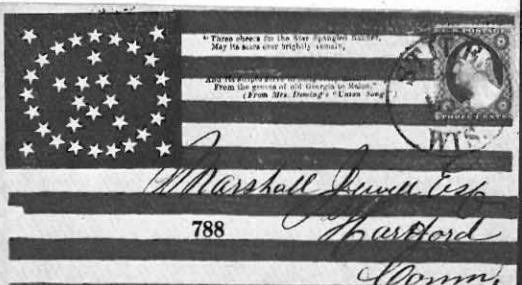 "Three cheers for the Star Spangled Banner,
May its stars ever brightly remain,
And its
From the groves of old Georgia to Maine."
(From Mrs. Deming's "Union Song")
U.S. POSTAGE
THREE CENTS
WIS.
Marshall Jewell Esq
788
Hartford
Conn,